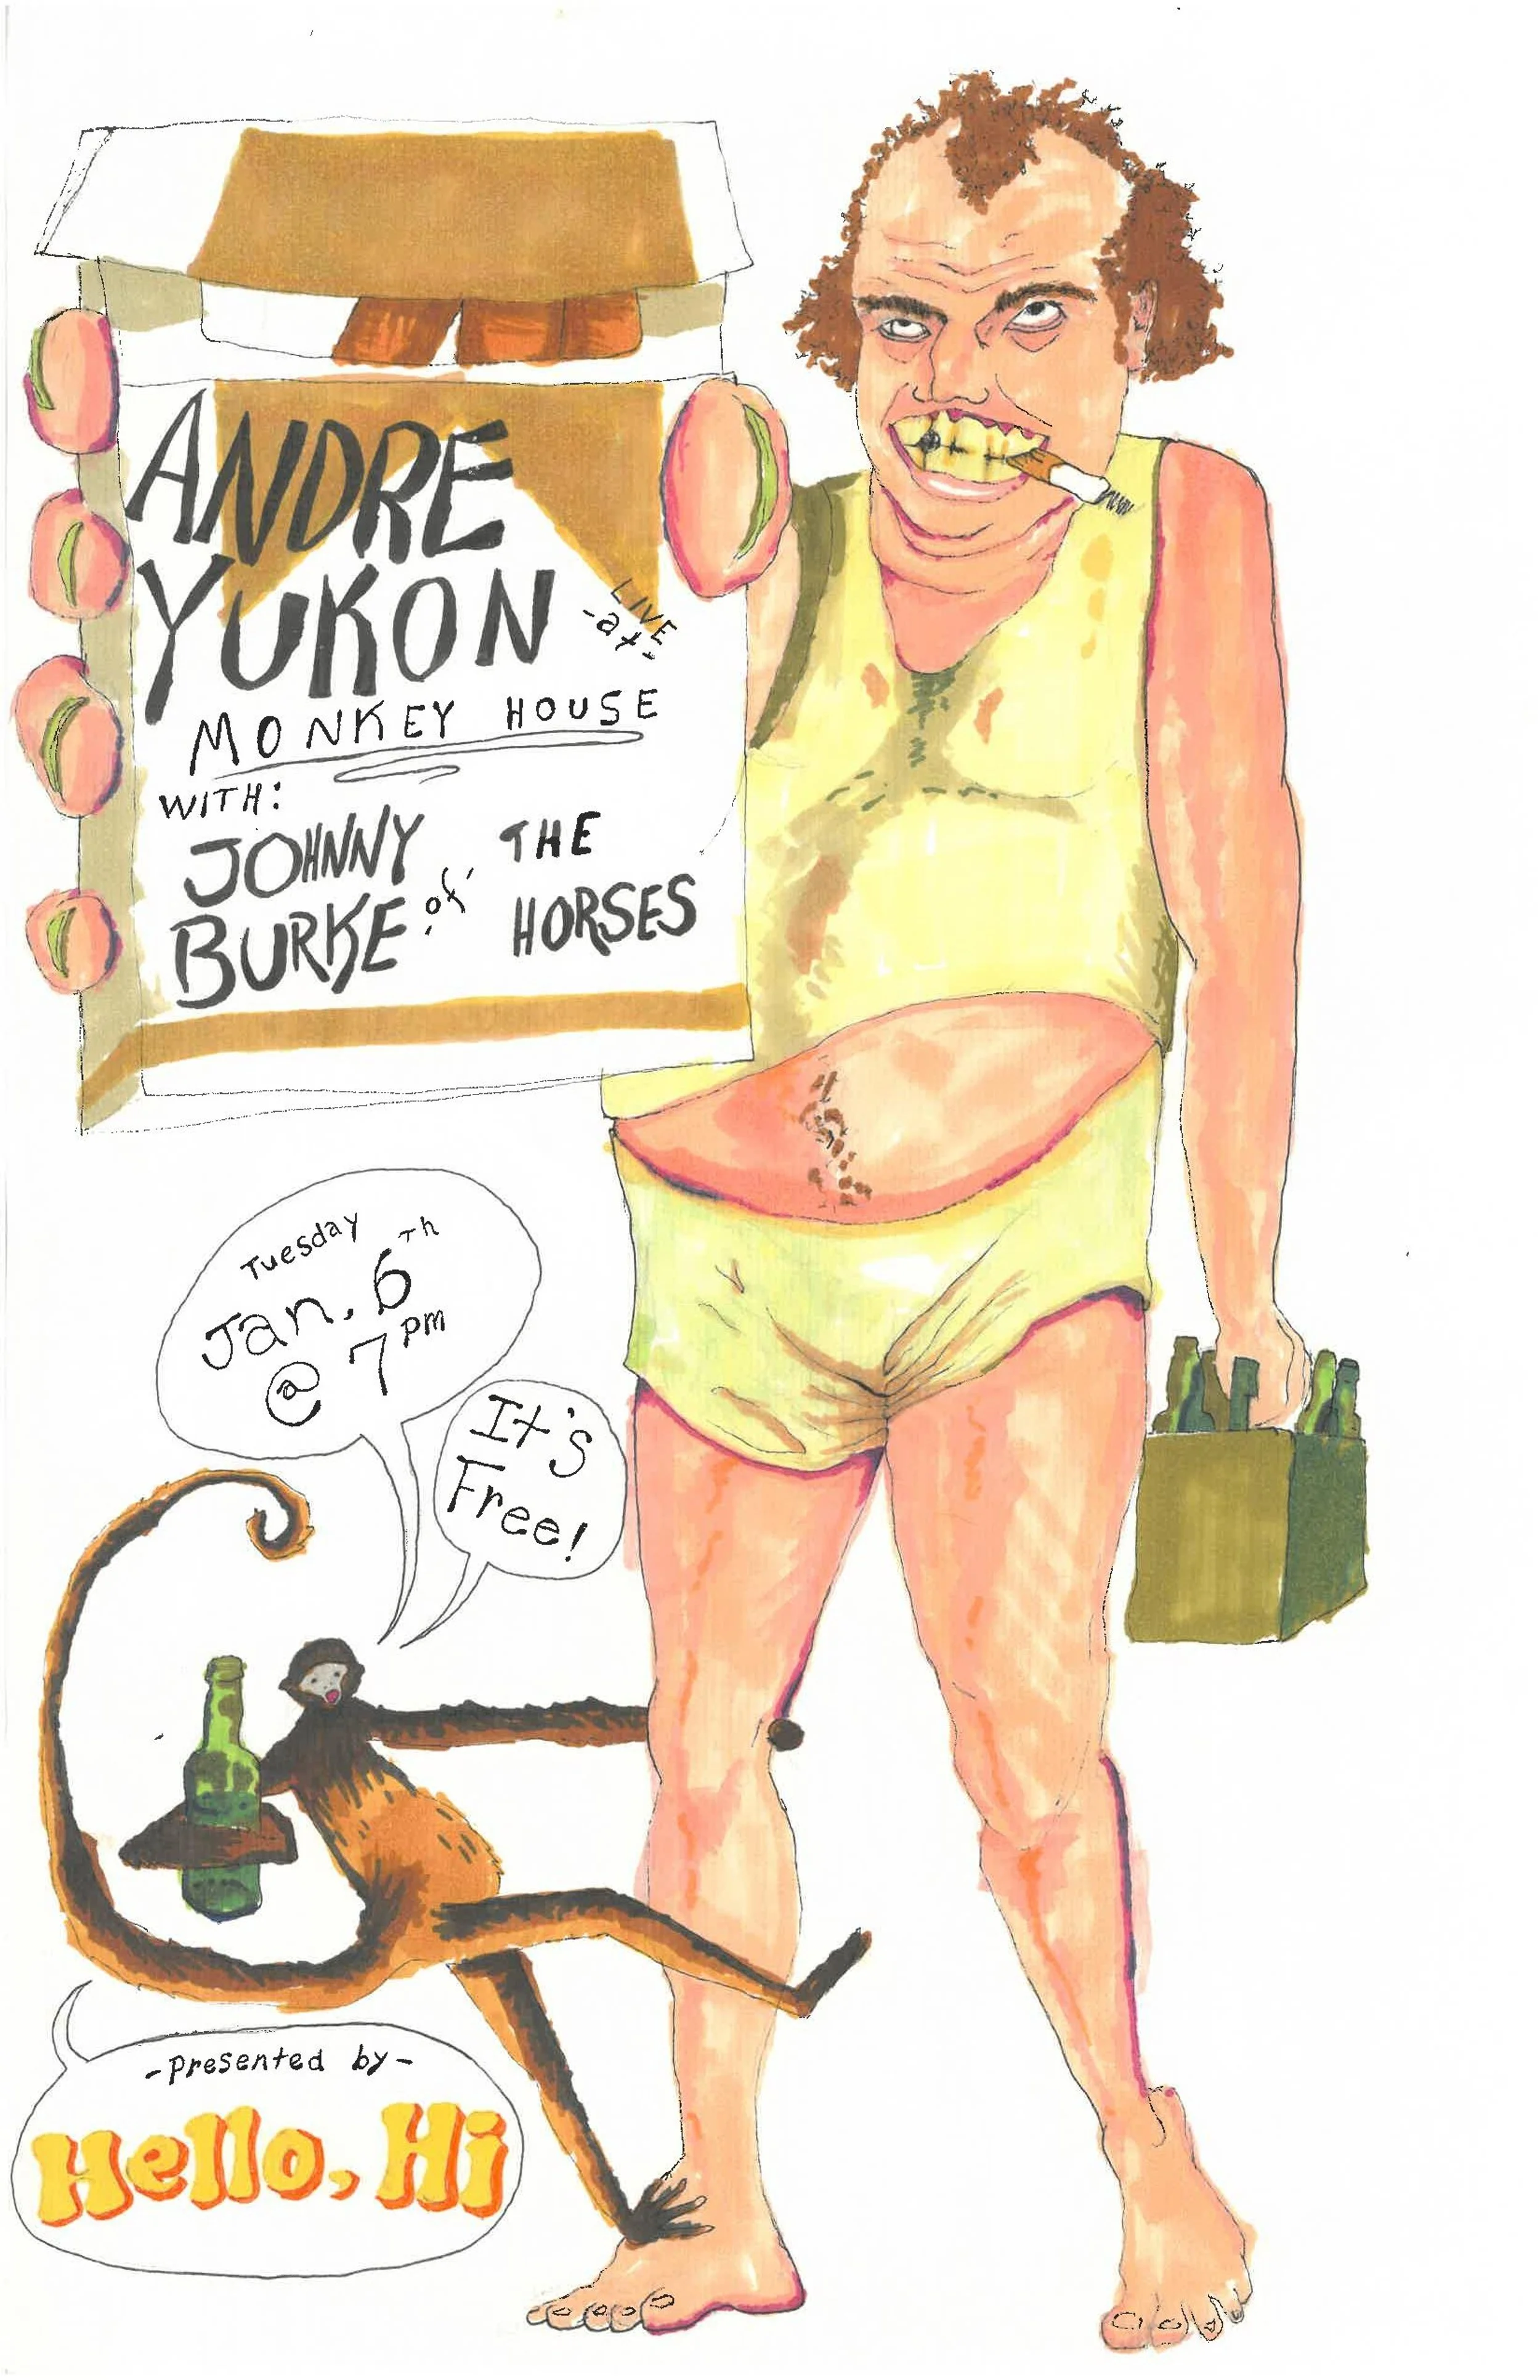 ANDRE
YUKON
LIVE
-at-
MONKEY HOUSE
WITH:
JOHNNY
BURKE of THE
HORSES
Tuesday
Jan. 6th
@ 7pm
It's
Free!
-presented by-
Hello, Hi